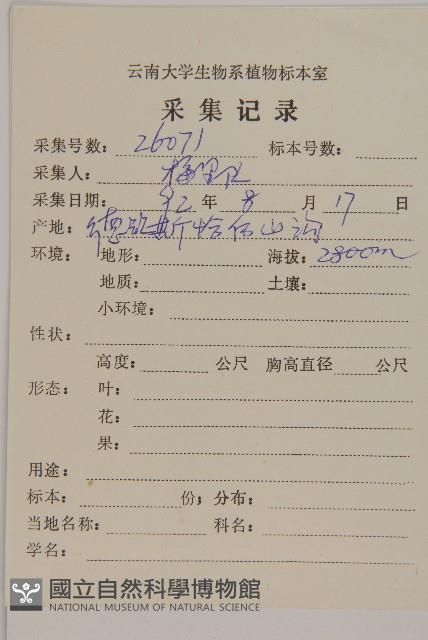 云南大学生物系植物标本室
采集记录
采集号数：26071 标本号数：
采集人：
采集日期： 年 8 月 17 日
产地：德钦斯恰 山沟
环境： 地形： 海拔：2800m
地质： 土壤：
小环境：
性状：
高度： 公尺 胸高直径 公尺
形态： 叶：
花：
果：
用途：
标本： 份； 分布：
当地名称： 科名：
学名：
國立自然科學博物館
NATIONAL MUSEUM OF NATURAL SCIENCE